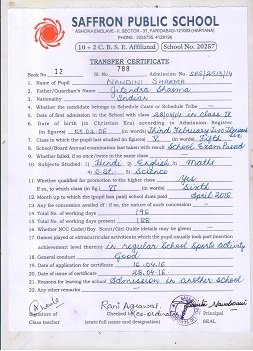 SAFFRON PUBLIC SCHOOL
ASHOKA ENCLAVE - II, SECTOR - 37, FARIDABAD-121003 (HARYANA)
10 + 2 C. B. S. E. Affiliated School No. 20257
TRANSFER CERTIFICATE
Book No. 12 Sl. No. 788 Admission No. SPS/2513/14
1. Name of Pupil NANDINI SHARMA
2. Father/Guardian's Name Jitendra Sharma
3. Nationality Indian
4. Whether the candidate belongs to Schedule Caste or Schedule Tribe
5. Date of first admission in the School with class in class IV
6. Date of birth (in Christian Era) according to Admission Register
(in figures) 03.02.06 (in words) Third February
7. Class in which the pupil last studied (in figures) V (in words) Fifth
8. School/Board annual examination last taken with result School Exam Passed
9. Whether failed, if so once/twice in the same class
10. Subjects Studied : 1) Hindi 2) English 3) Maths
4) S.St. 5) Science
11. Whether qualified for promotion to the higher class Yes
If so, to which class (in fig.) VI (in words) Sixth
12. Month up to which the (pupil has paid) school dues paid April 2016
13. Any fee concession availed : if so, the nature of such concession
14. Total No. of working days 196
15. Total No. of working days present 188
16. Whether NCC Cadet/Boy Scout/Girl Guide (details may be given)
17. Games played or extracurricular activities in which the pupil usually took part (mention
achievement level therein) in regular School Sports activity
18. General conduct Good
19. Date of application of certificate 16.04.16
20. Date of issue of certificate 28.04.16
21. Reasons for leaving the school Admission in another school
22. Any other remarks
Rani Agrawal
Signature of Checked by Co-ordinator Principal
Class teacher (state full name and designation) SEAL